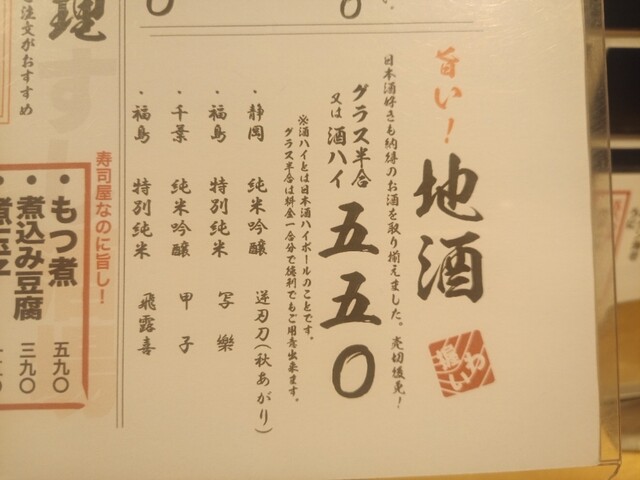 旨い！
地酒
日本酒好きも納得のお酒を取り揃えました。売切御免！
グラス半合
又は酒ハイ
五五〇
※酒ハイとは日本酒ハイボールのことです。
グラス半合は料金一合分で徳利でもご用意出来ます。
・静岡 純米吟醸 逆刃刀（秋あがり）
・福島 特別純米 写樂
・千葉 純米吟醸 甲子
・福島 特別純米 飛露喜
注文がおすすめ
寿司屋なのに旨し！
・もつ煮 五九〇
・煮込み豆腐 三九〇